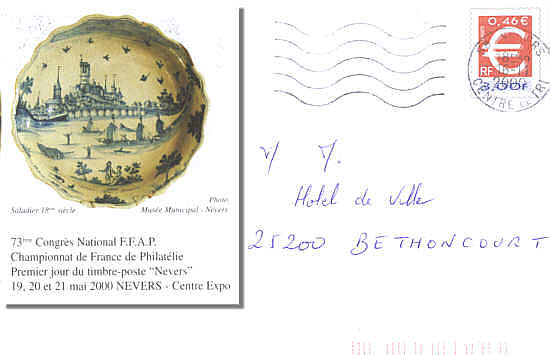 Photo
Saladier 18ème siècle Musée Municipal - Nevers
73ème Congrès National F.F.A.P.
Championnat de France de Philatélie
Premier jour du timbre-poste “Nevers”
19, 20 et 21 mai 2000 NEVERS - Centre Expo
0,46 €
€
RF
3,00F
2000
CENTRE DE TRI
Hotel de Ville
25200 BETHONCOURT